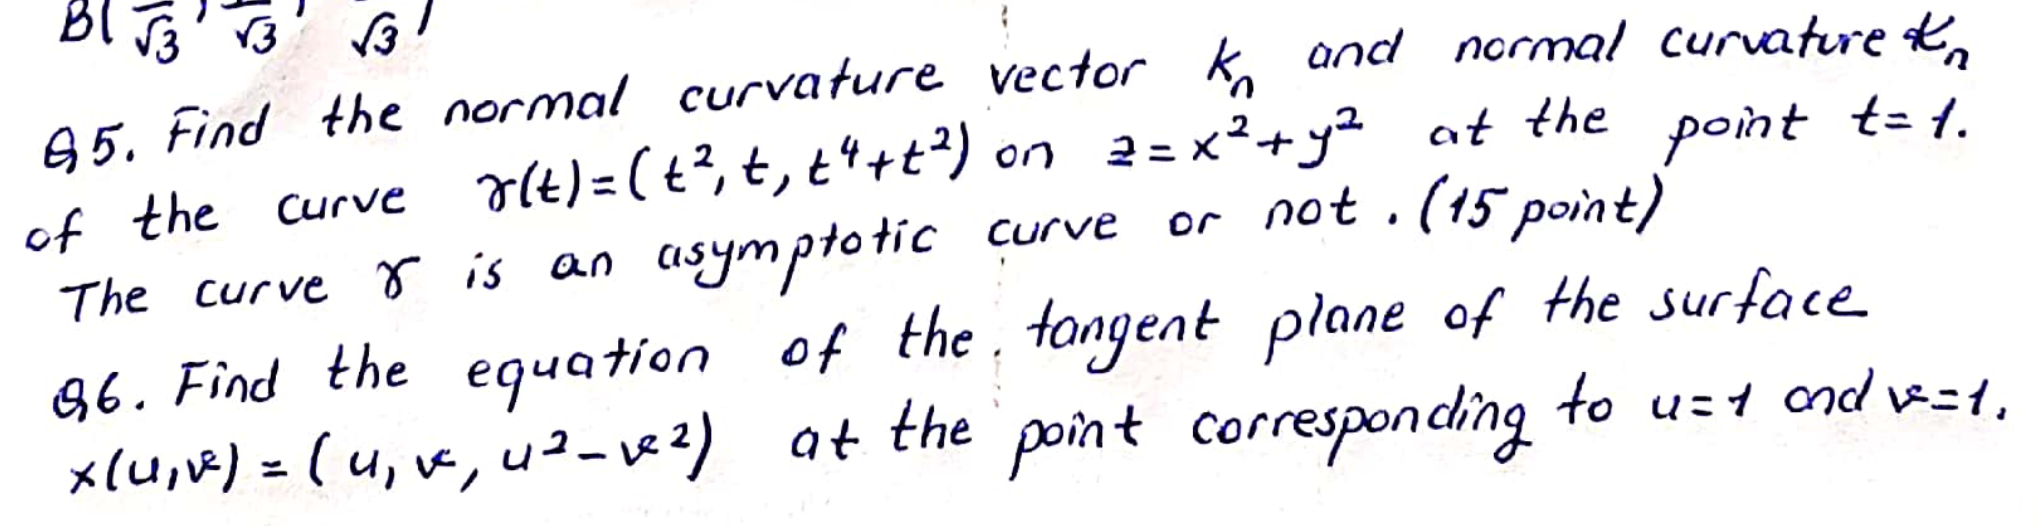 B( √3 , √3 , √3 )
Q5. Find the normal curvature vector kₙ and normal curvature κₙ
of the curve γ(t)=(t², t, t⁴+t²) on z=x²+y² at the point t=1.
The curve γ is an asymptotic curve or not. (15 point)
Q6. Find the equation of the tangent plane of the surface
x(u,v) = (u, v, u²-v²) at the point corresponding to u=1 and v=1.